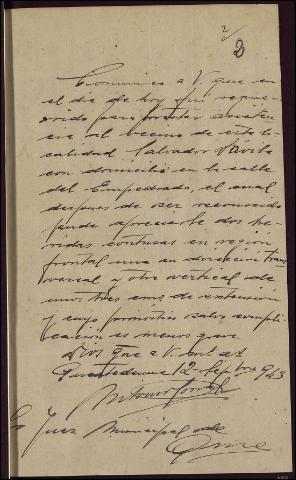 2
2
Comunico a V. que en
el dia de hoy fui reque-
rido para prestar asisten-
cia al vecino de esta lo-
calidad Salvador Dávila
con domicilio en la calle
del Empedrado, el cual
despues de ser reconocido
pude apreciarle dos he-
ridas contusas en región
frontal una en dirección trans-
versal y otra vertical de
unos tres cms. de extensión
y cuyo pronostico salvo compli-
cación es menos grave
Dios gue a V. m. a.
12 Sepbre 943
Juez Municipal de